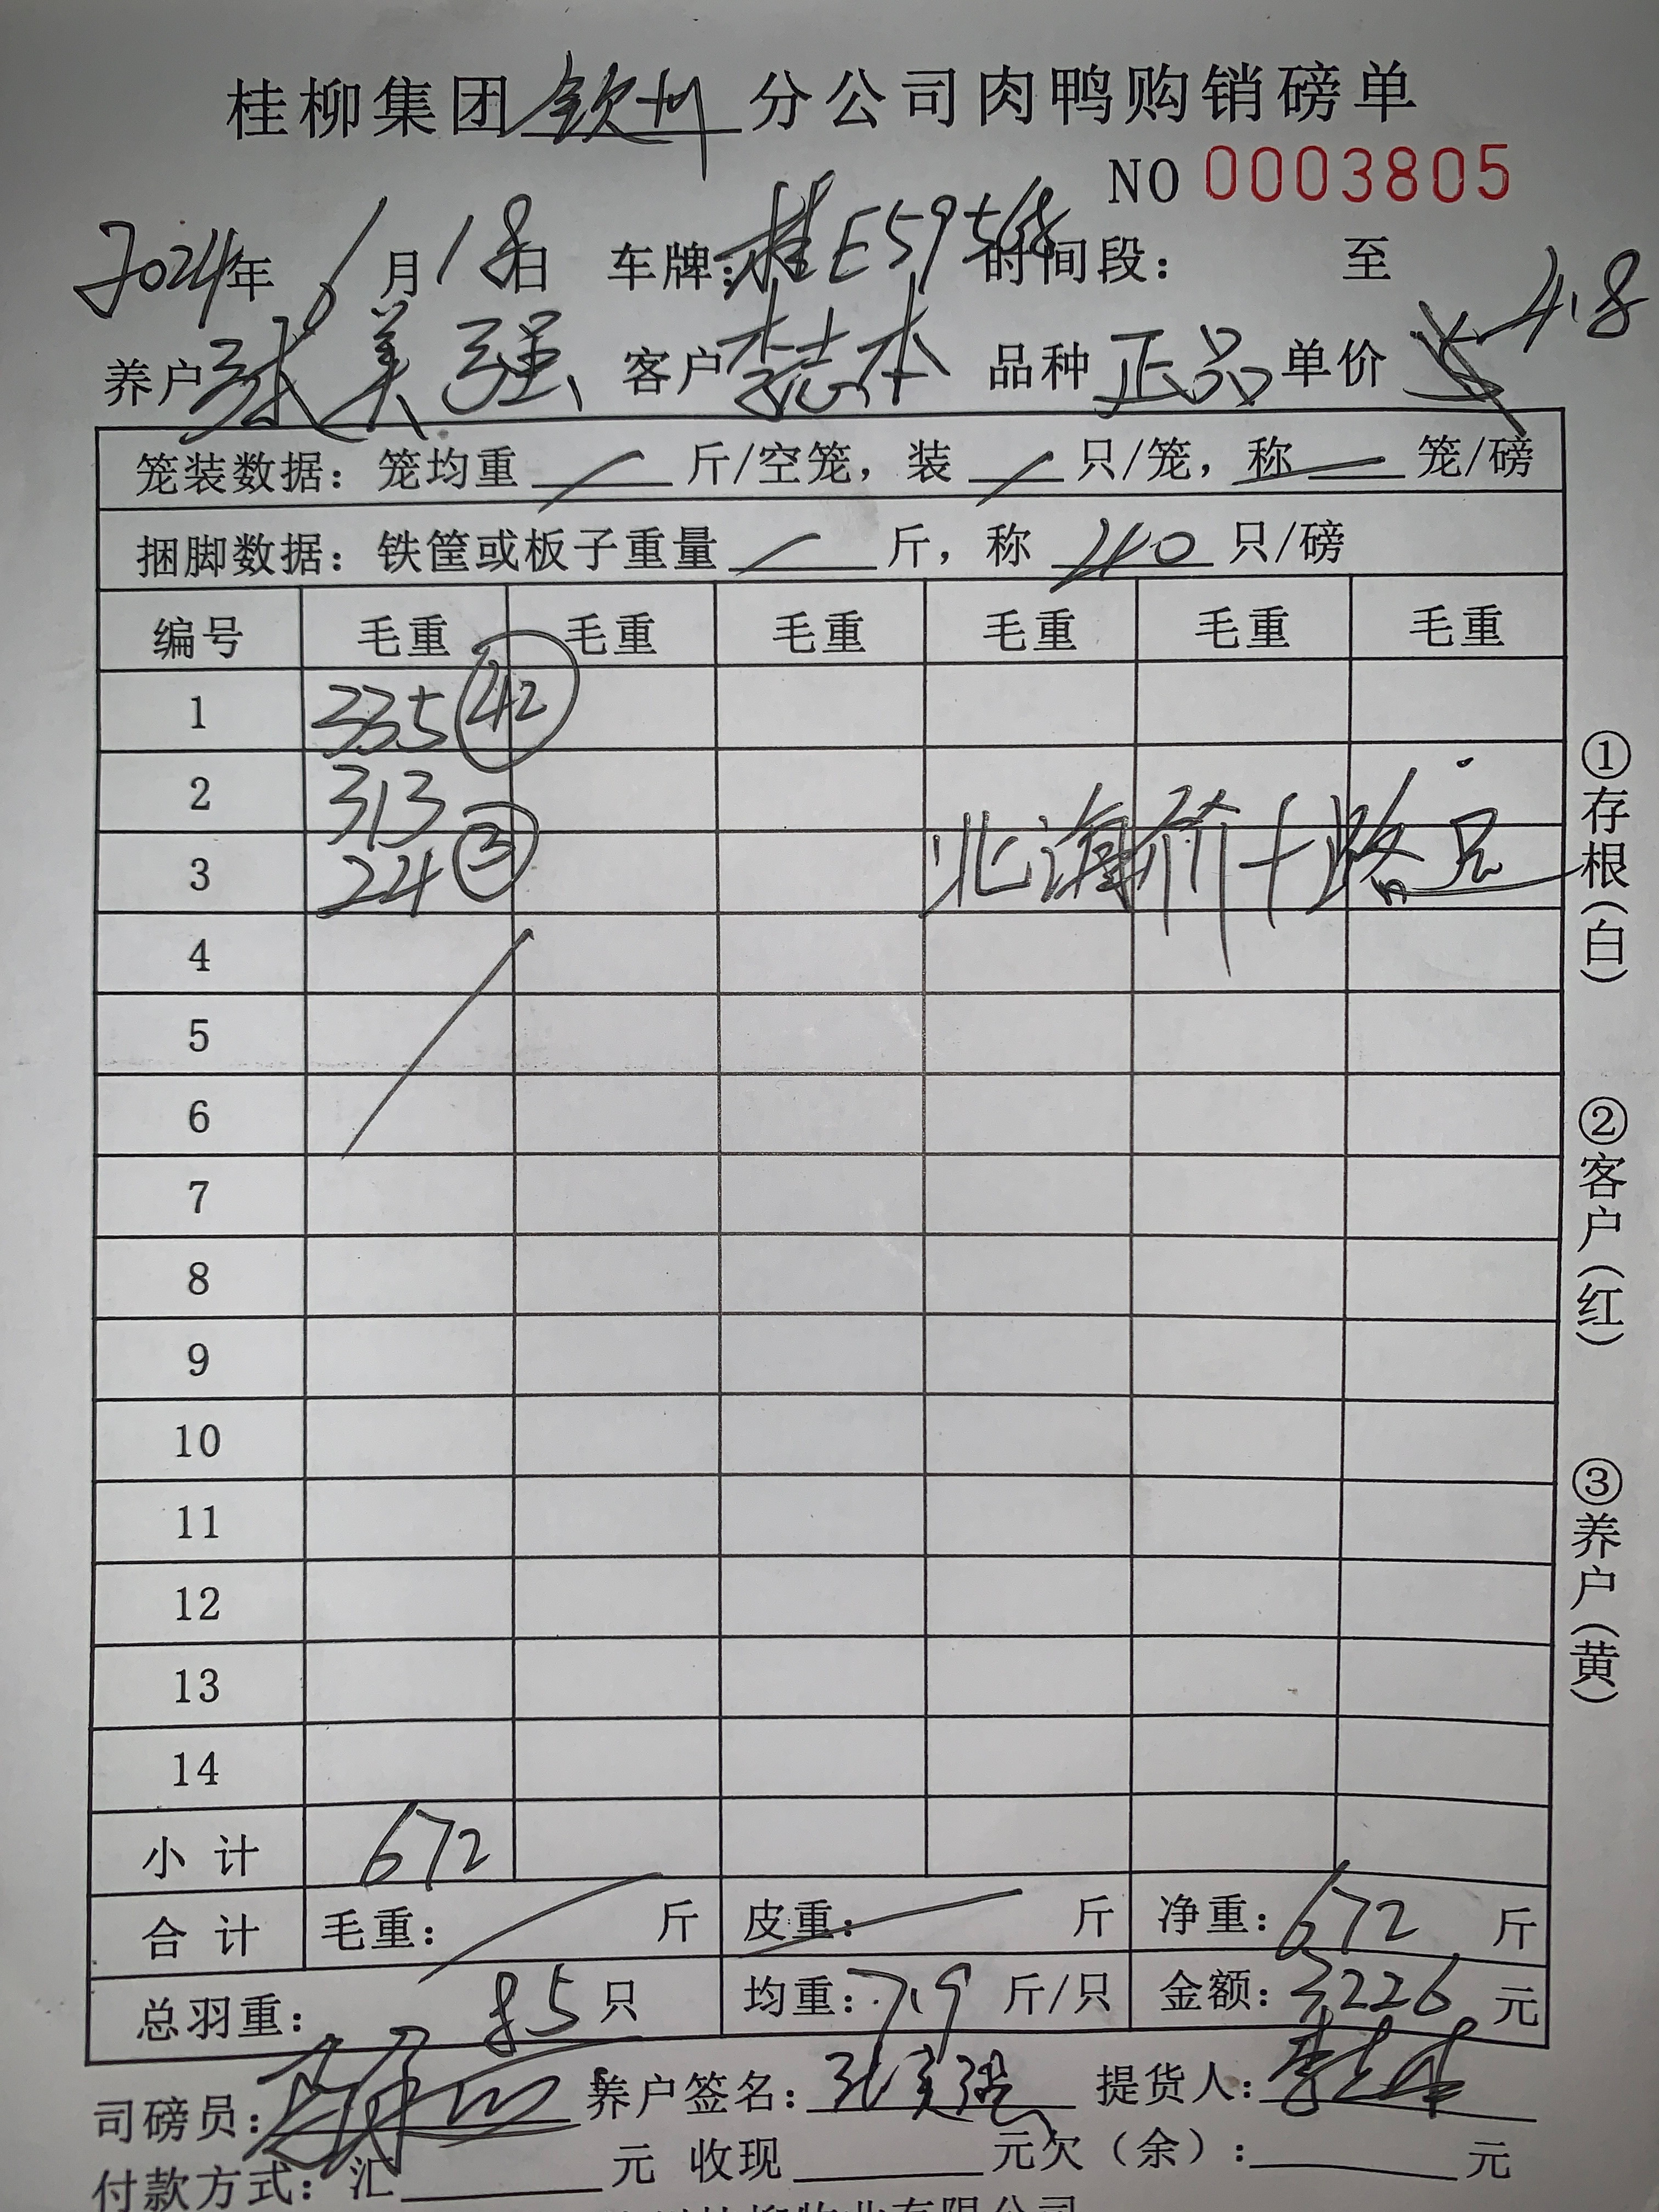 桂柳集团钦州分公司肉鸭购销磅单
NO 0003805
2024年 1月18日 车牌:桂E595 时间段: 至
养户 张美强 客户 李志本 品种 正品 单价 4.8
笼装数据: 笼均重 斤/空笼, 装 只/笼, 称 笼/磅
捆脚数据: 铁筐或板子重量 斤, 称 40 只/磅
编号 毛重 毛重 毛重 毛重 毛重 毛重
1 335 42
2 313
3 24 3 北海价+路
4
5
6
7
8
9
10
11
12
13
14
小计 672
合计 毛重: 斤 皮重: 斤 净重: 672 斤
总羽重: 85只 均重: 7.9 斤/只 金额: 3226 元
司磅员: 养户签名: 张美强 提货人: 李志本
付款方式: 汇 元 收现 元欠(余): 元
①存根(白)
②客户(红)
③养户(黄)